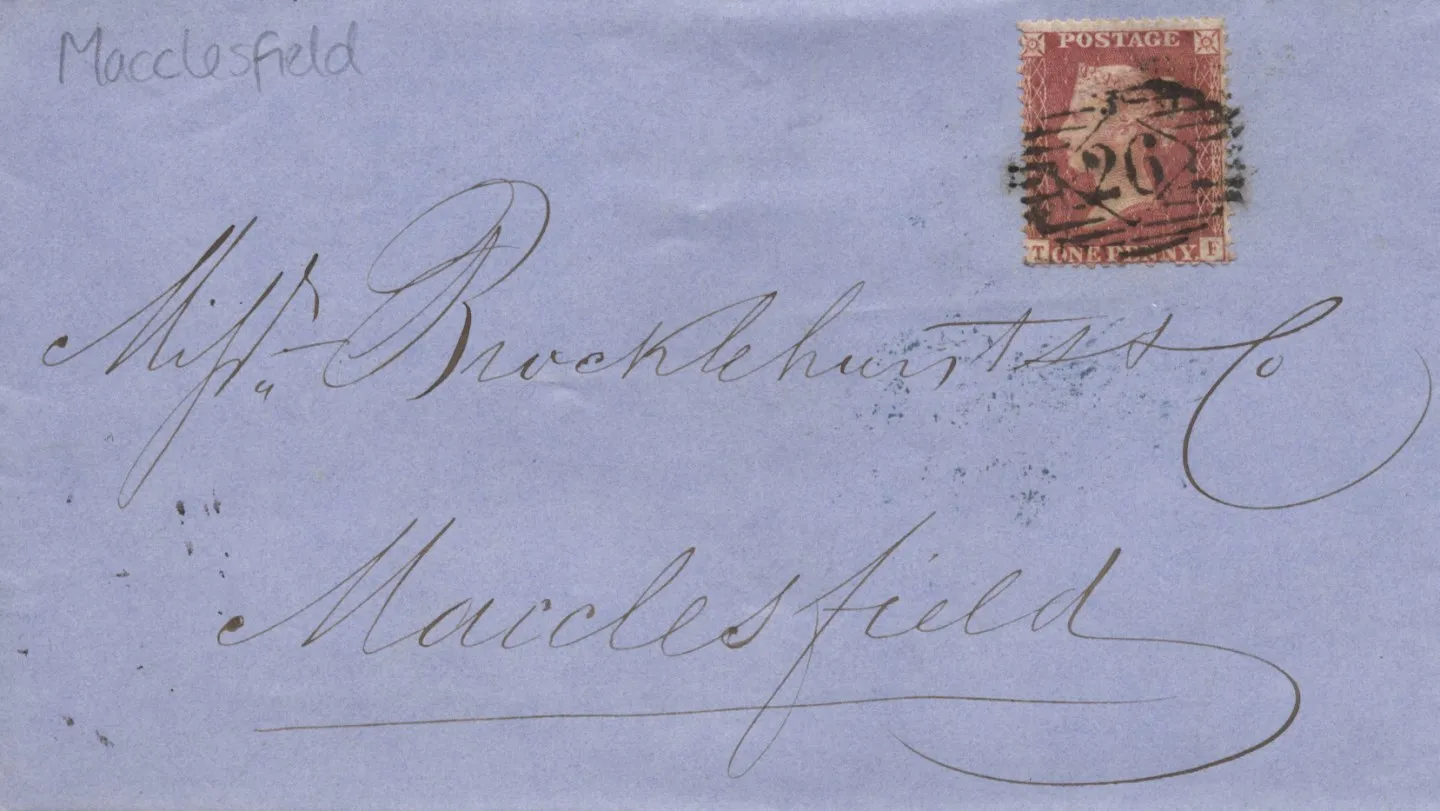 Macclesfield
POSTAGE
26
T ONE PENNY F
Messrs Brocklehursts & Co
Macclesfield